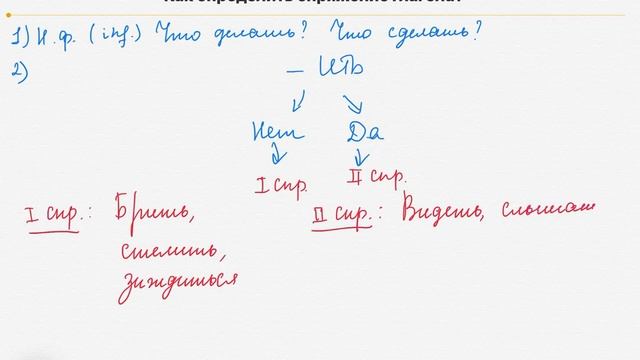 Как определить спряжение глагола?
1) Н.ф. (inf.) Что делать? Что сделать?
2) – ИТЬ
Нет Да
I спр. II спр.
I спр.: Брить, II спр.: Видеть, слышат
стелить,
зиждиться